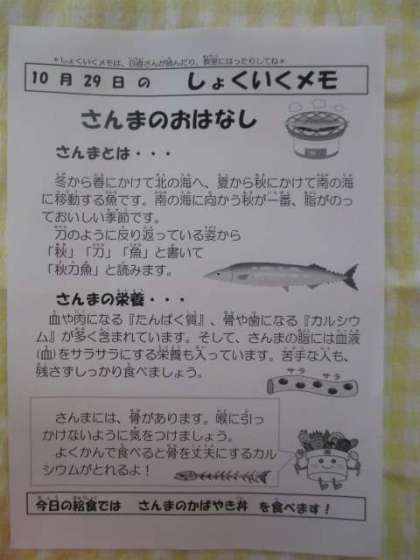 *しょくいくメモは、日直さんが読んだり、教室にはったりしてね*
10月29日の しょくいくメモ
さんまのおはなし
さんまとは・・・
冬から春にかけて北の海へ、夏から秋にかけて南の海
に移動する魚です。南の海に向かう秋が一番、脂がのっ
ておいしい季節です。
刀のように反り返っている姿から
「秋」「刀」「魚」と書いて
「秋刀魚」と読みます。
さんまの栄養・・・
血や肉になる『たんぱく質』、骨や歯になる『カルシウ
ム』が多く含まれています。そして、さんまの脂には血液
(血)をサラサラにする栄養も入っています。苦手な人も、
残さずしっかり食べましょう。
サラ サラ
さんまには、骨があります。喉に引っ
かけないように気をつけましょう。
よくかんで食べると骨を丈夫にするカル
シウムがとれるよ！
今日の給食では さんまのかばやき丼 を食べます！